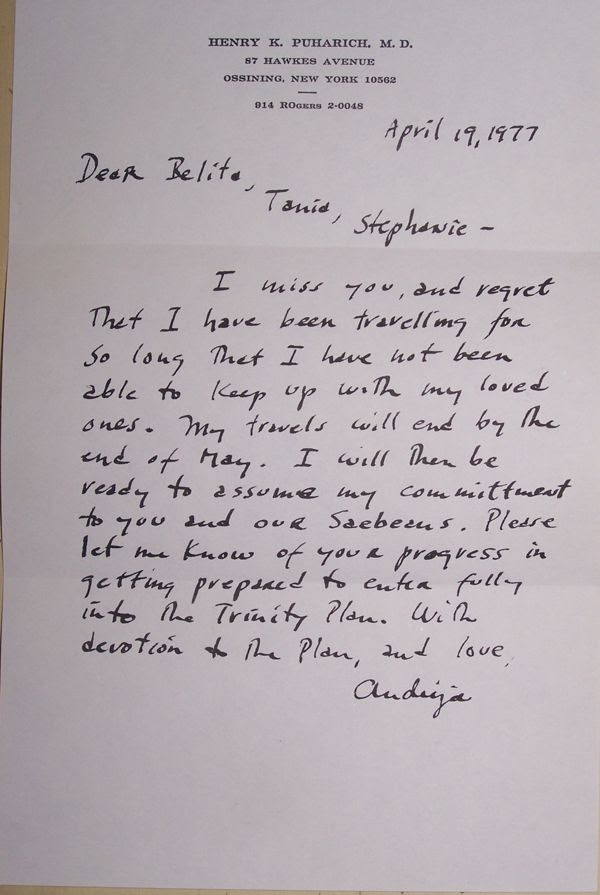 HENRY K. PUHARICH, M. D.
87 HAWKES AVENUE
OSSINING, NEW YORK 10562
914 ROGERS 2-0048
April 19, 1977
Dear Belita,
Tania,
Stephanie –
I miss you, and regret
That I have been travelling for
So long That I have not been
able to keep up with my loved
ones. My travels will end by the
end of May. I will Then be
ready to assume my committment
to you and our Saebeans. Please
let me know of your progress in
getting prepared to enter fully
into the Trinity Plan. With
devotion to the Plan, and love,
Andrija